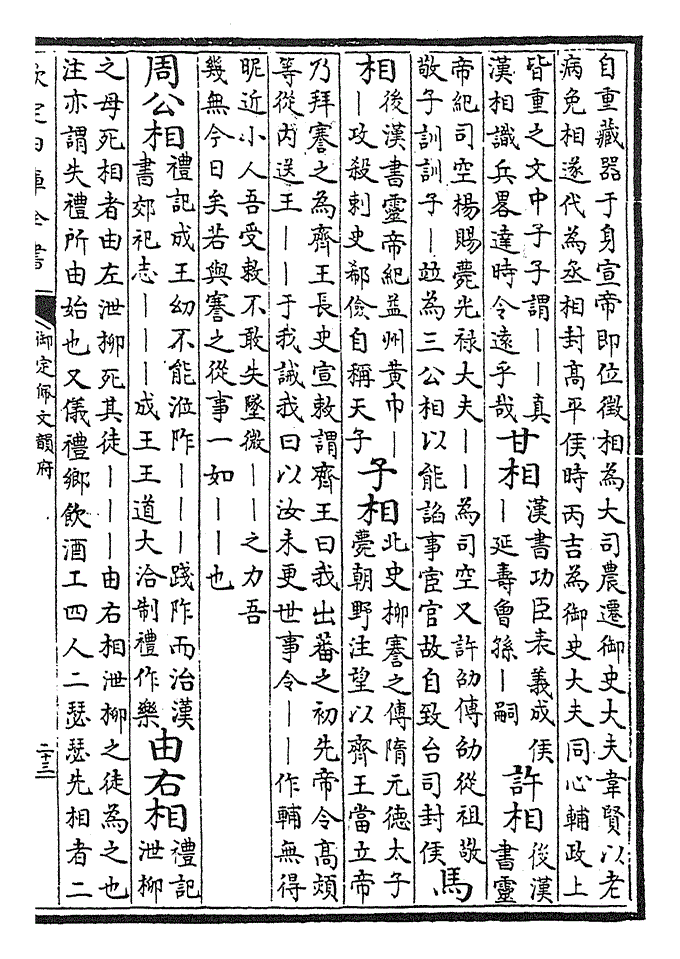 自重藏器于身宣帝即位徵相為大司農遷御史大夫韋賢以老
病免相遂代為丞相封高平侯時丙吉為御史大夫同心輔政上
皆重之文中子子謂——真
漢相識兵畧達時令遠乎哉
甘相
漢書功臣表義成侯
—延壽曾孫—嗣
許相
後漢
書靈
帝紀司空楊賜薨光禄大夫——為司空又許劭傳劭從祖敬
敬子訓訓子—竝為三公相以能諂事宦官故自致台司封侯
馬
相
後漢書靈帝紀益州黄巾—
—攻殺刺史郗儉自稱天子
子相
北史柳謇之傳隋元德太子
薨朝野注望以齊王當立帝
乃拜謇之為齊王長史宣敕謂齊王曰我出蕃之初先帝令高熲
等從内送王——于我誡我曰以汝未更世事令——作輔無得
昵近小人吾受敕不敢失墜微——之力吾
幾無今日矣若與謇之從事一如——也
周公相
禮記成王幼不能涖阼———踐阼而治漢
書郊祀志————成王王道大洽制禮作樂
由右相
禮記
泄柳
之母死相者由左泄柳死其徒———由右相泄柳之徒為之也
注亦謂失禮所由始也又儀禮鄉飲酒工四人二瑟瑟先相者二
欽定四庫全書
御定佩文韻府
二十三